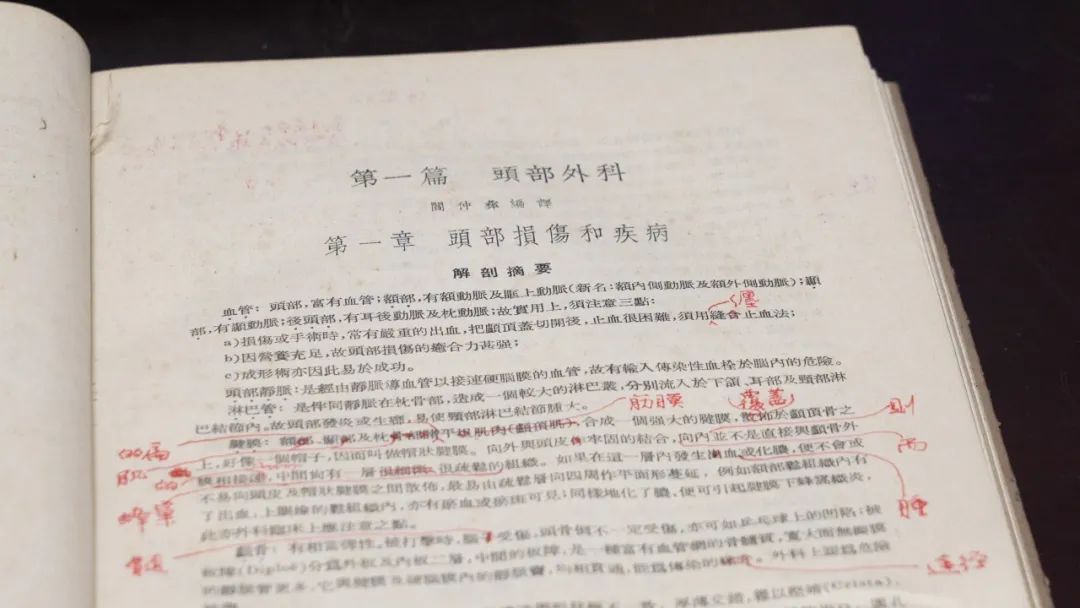 第一篇 頭部外科
閻仲彝編譯
第一章 頭部損傷和疾病
解剖摘要
血管：頭部，富有血管；額部，有額動脈及眶上動脈（新名：額內側動脈及額外側動脈）；顳
部，有顳動脈；後頭部，有耳後動脈及枕動脈；故實用上，須注意三點：
壓
a)損傷或手術時，常有嚴重的出血，把顱頂蓋切開後，止血很困難，須用縫合止血法；
b)因營養充足，故頭部損傷的癒合力甚强；
c)成形術亦因此易於成功。
頭部靜脈：是經由靜脈導血管以接連硬腦膜的血管，故有輸入傳染性血栓於腦內的危險。
淋巴管：是伴同靜脈在枕骨部，造成一個較大的淋巴叢，分別流入於下頷、耳部及頸部淋
巴結節內。故頭部發炎或生癤，易使頸部淋巴結節腫大。
筋膜
覆蓋
腱膜：額部、顳部及枕 平提肌肉（顱頂肌），合成一個強大的腱膜，散佈於顱頂骨之
上，好像一個帽子，因而叫做帽狀腱膜。向外與頭皮 牢固的結合，向內並不是直接與顱骨外
膜相接連，中間尚有一層 很疏鬆的組織。如果在這一層內發生 血或化膿，便不會或
不易向頭皮及帽狀腱膜之間散佈，最易由疏鬆層向四周作平面形蔓延，例如額部鬆組織內有
了出血，上眼瞼的鬆組織內，亦有瘀血或瘀斑可見；同樣地化了膿，便可引起腱膜下蜂窩織炎，
此亦外科臨床上應注意之點。
肌
蜂巢
腫
顱骨：有相當彈性，被打擊時，腦 受傷，頭骨倒不一定受傷，亦可如乒乓球上的凹陷；被
板障(Diploë)分爲外板及內板二層，中間的板障，是一種富有血管網的骨髓質，寬大而無瓣膜
的靜脈管更多，它與腱膜及硬腦膜內的靜脈竇，均相貫通，能爲傳染的 。外科上認爲危險
貫通